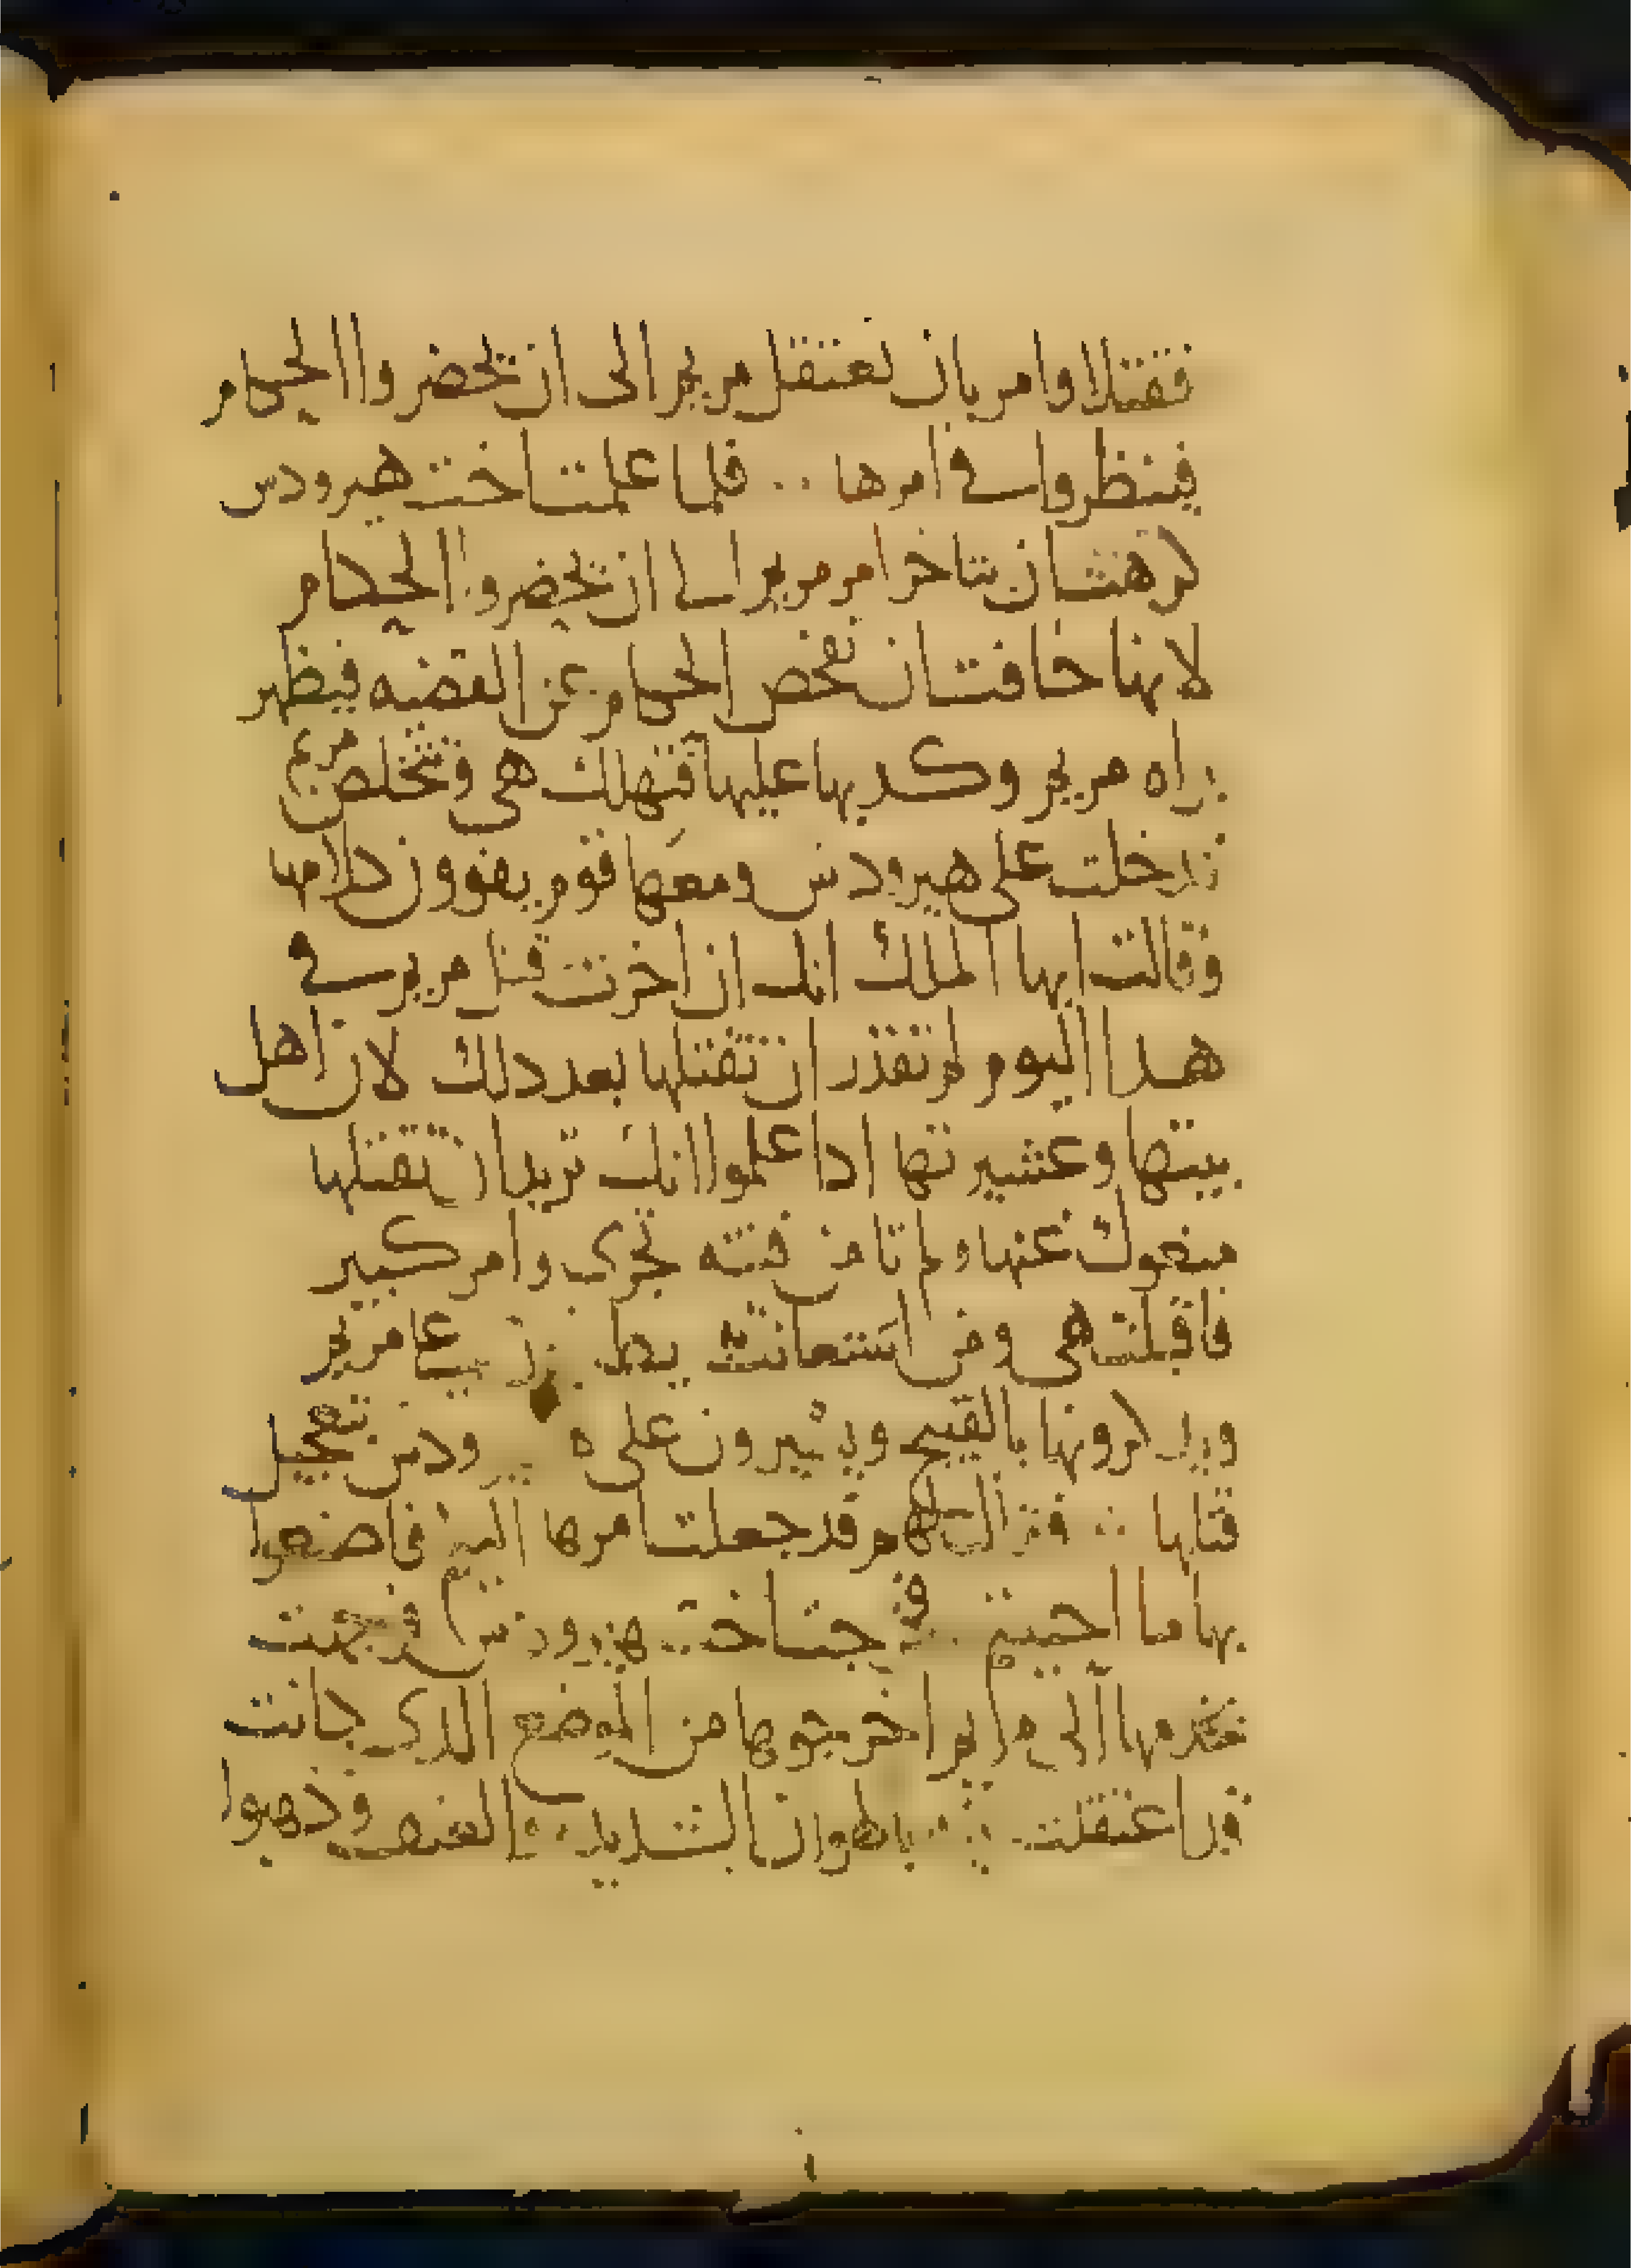 فقتلا وامر بان تعتقل مريم الى ان يحضروا الحكام
فينظروا في امرها ∴ فلما علمت اخت هيرودس
كرهت ان يتاخر امر مريم الى ان يحضروا الحكام
لانها خافت ان تفحص الحكام عن القضيه فيظهر
براه مريم وكدبها عليها فتهلك هي وتتخلص مريم
فدخلت على هيرودس ومعها قوم يقوون كلامها
وقالت ايها الملك انك ان اخرت قتل مريم في
هدا اليوم لم تقدر ان تقتلها بعد دلك لان اهل
بيتها وعشيرتها ادا علموا انك تريد ان تقتلها
منعوك عنها ولم تامن فتنه تجرى وامر كبير
فاقبلت هي ومن استعانت على مريم
ويدكرونها بالقبيح ويشيرون على هيرودس بتعجيل
قتلها ∴ فقال لهم قد جعلت امرها اليكم فاصنعوا
بها ما احببتم فخرجت اخت هيرودس فوجهت
بخدمها الى مريم اخرجوها من الموضع الدى كانت
قد اعتقلت فيه بالهوان الشديد والعنف وذهبوا